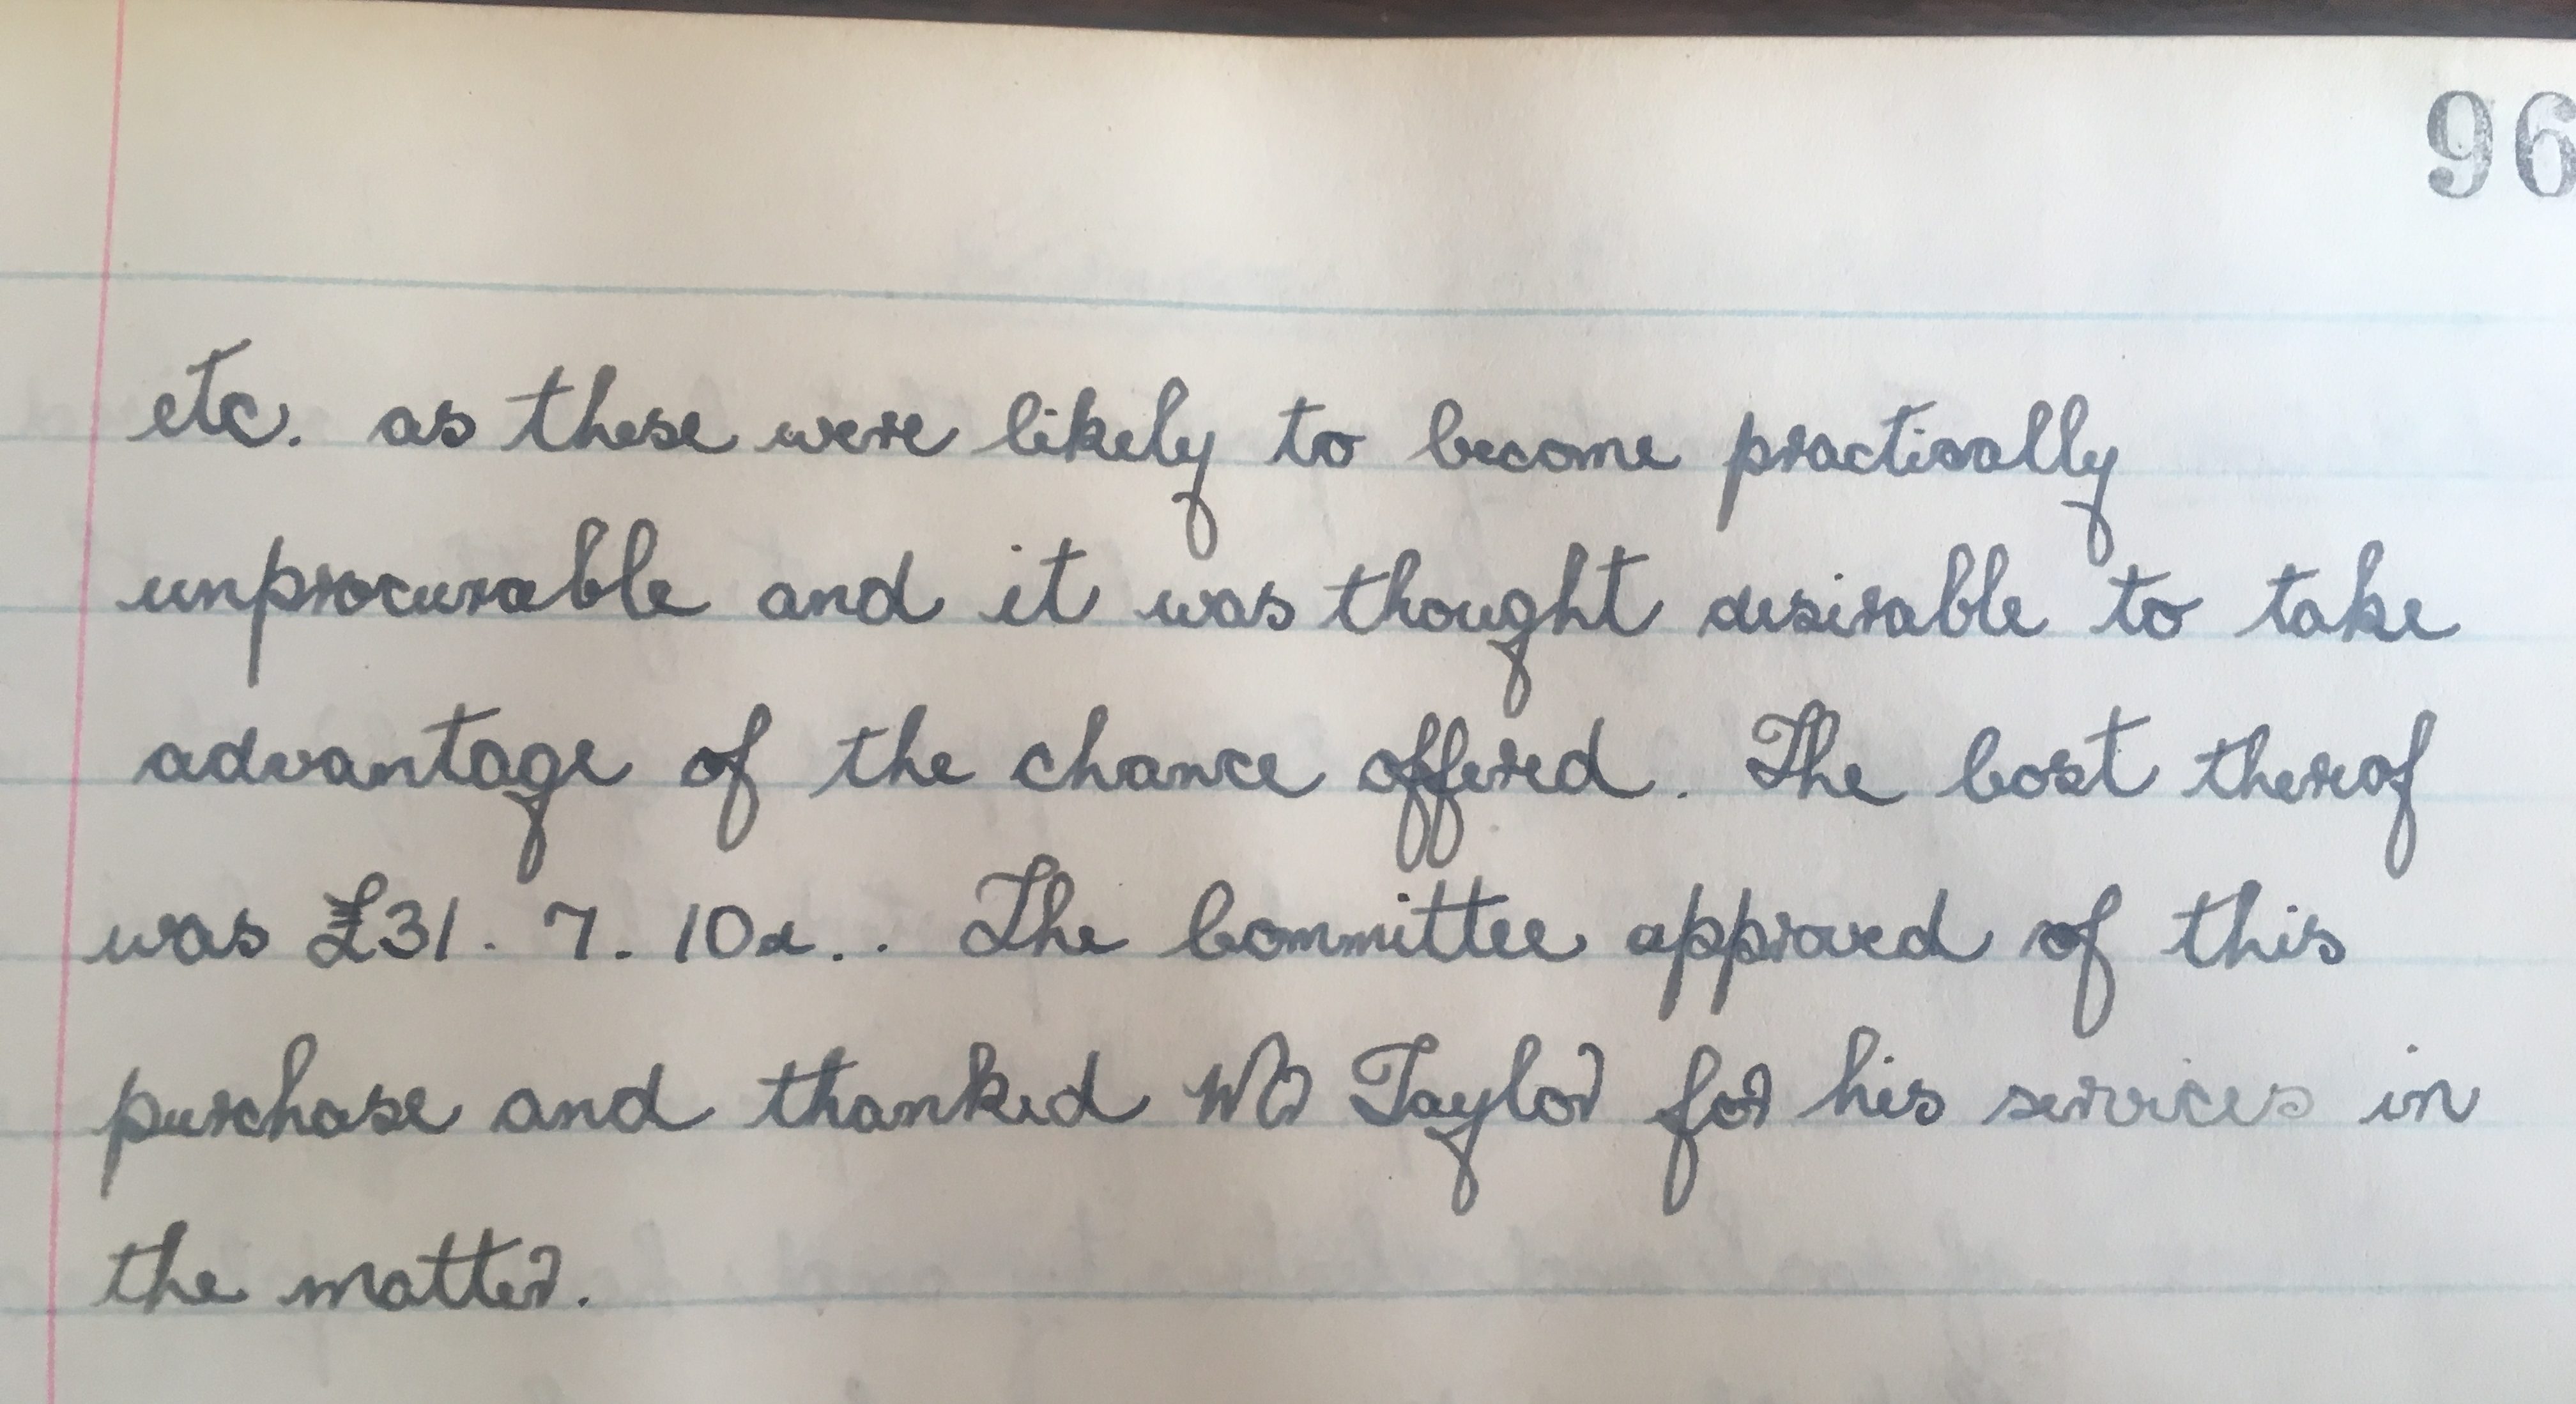 96
etc. as these were likely to become practically
unprocurable and it was thought desirable to take
advantage of the chance offered. The Cost thereof
was £31. 7. 10d.. The Committee approved of this
purchase and thanked Mr Taylor for his services in
the matter.